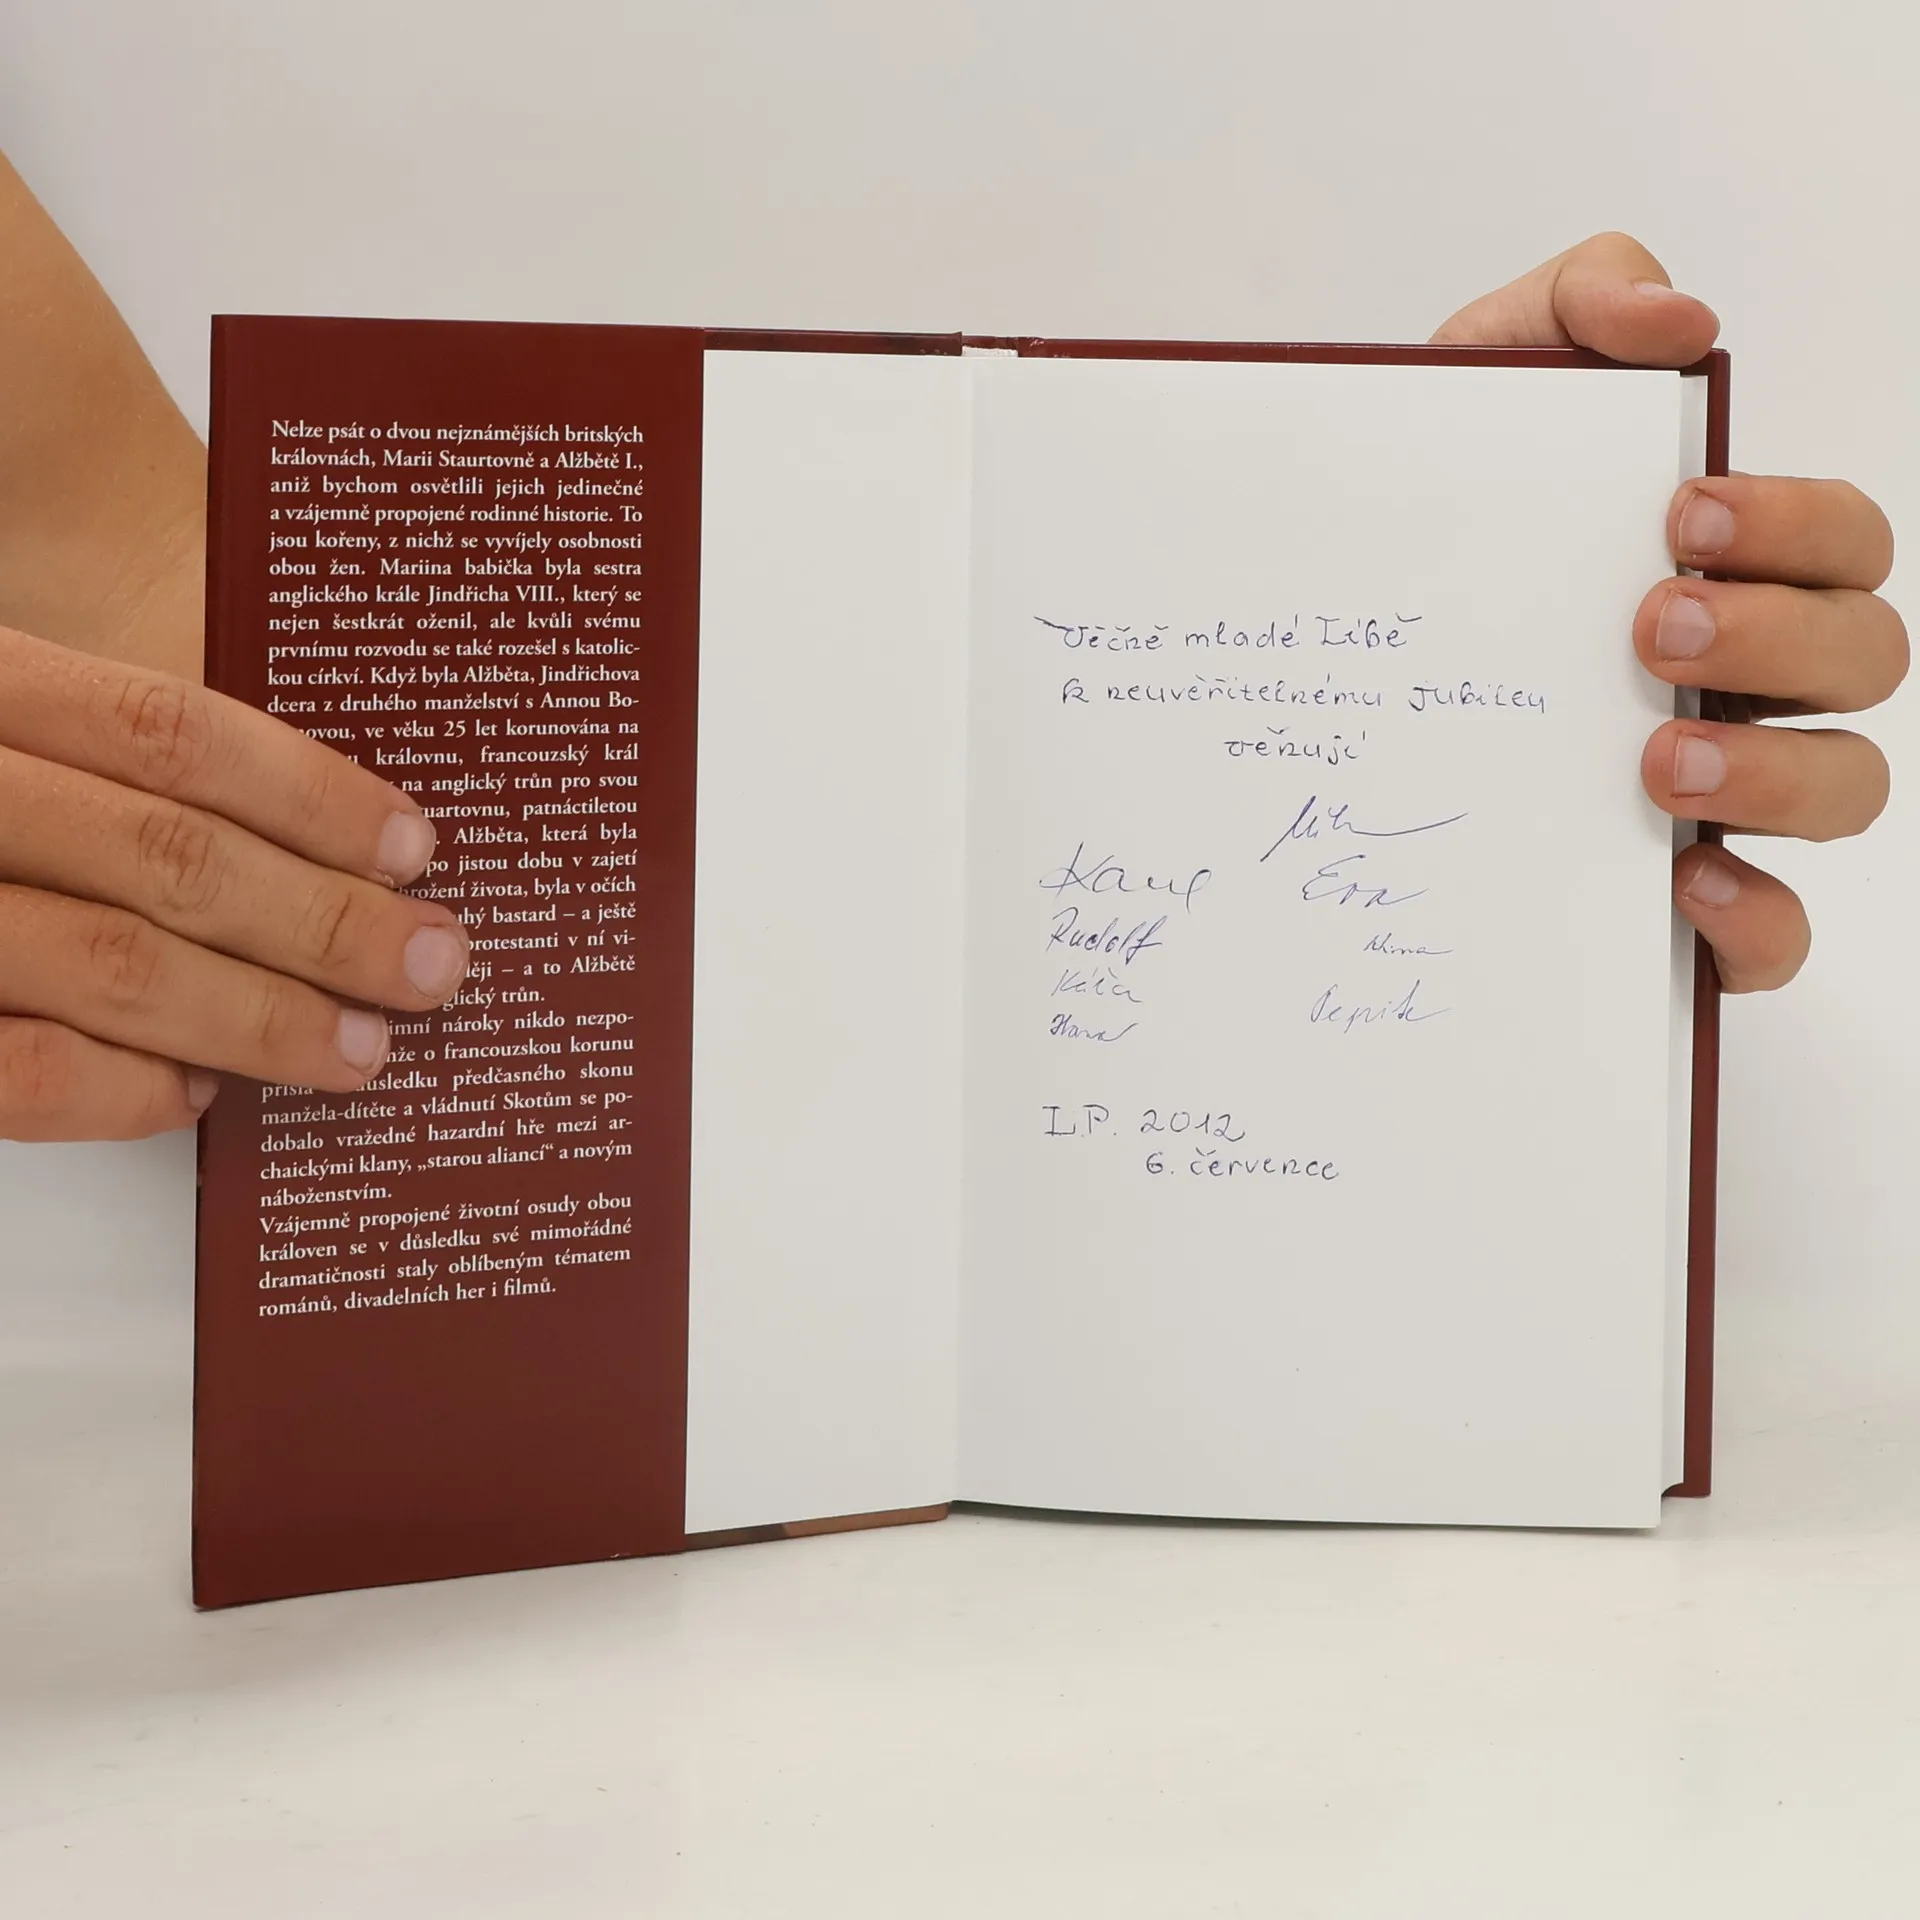 Nelze psát o dvou nejznámějších britských
královnách, Marii Staurtovně a Alžbětě I.,
aniž bychom osvětlili jejich jedinečné
a vzájemně propojené rodinné historie. To
jsou kořeny, z nichž se vyvíjely osobnosti
obou žen. Mariina babička byla sestra
anglického krále Jindřicha VIII., který se
nejen šestkrát oženil, ale kvůli svému
prvnímu rozvodu se také rozešel s katolic-
kou církví. Když byla Alžběta, Jindřichova
dcera z druhého manželství s Annou Bo-
ovou, ve věku 25 let korunována na
královnu, francouzský král
na anglický trůn pro svou
uartovnu, patnáctiletou
. Alžběta, která byla
po jistou dobu v zajetí
hrožení života, byla v očích
uhý bastard – a ještě
protestanti v ní vi-
ěji – a to Alžbětě
glický trůn.
imní nároky nikdo nezpo-
nže o francouzskou korunu
přišla důsledku předčasného skonu
manžela-dítěte a vládnutí Skotům se po-
dobalo vražedné hazardní hře mezi ar-
chaickými klany, „starou aliancí“ a novým
náboženstvím.
Vzájemně propojené životní osudy obou
královen se v důsledku své mimořádné
dramatičnosti staly oblíbeným tématem
románů, divadelních her i filmů.
Věčně mladé Libě
k neuvěřitelnému jubileu
věnují
Eva
Rudolf
Káča
Hana
Pepík
L.P. 2012
6. července